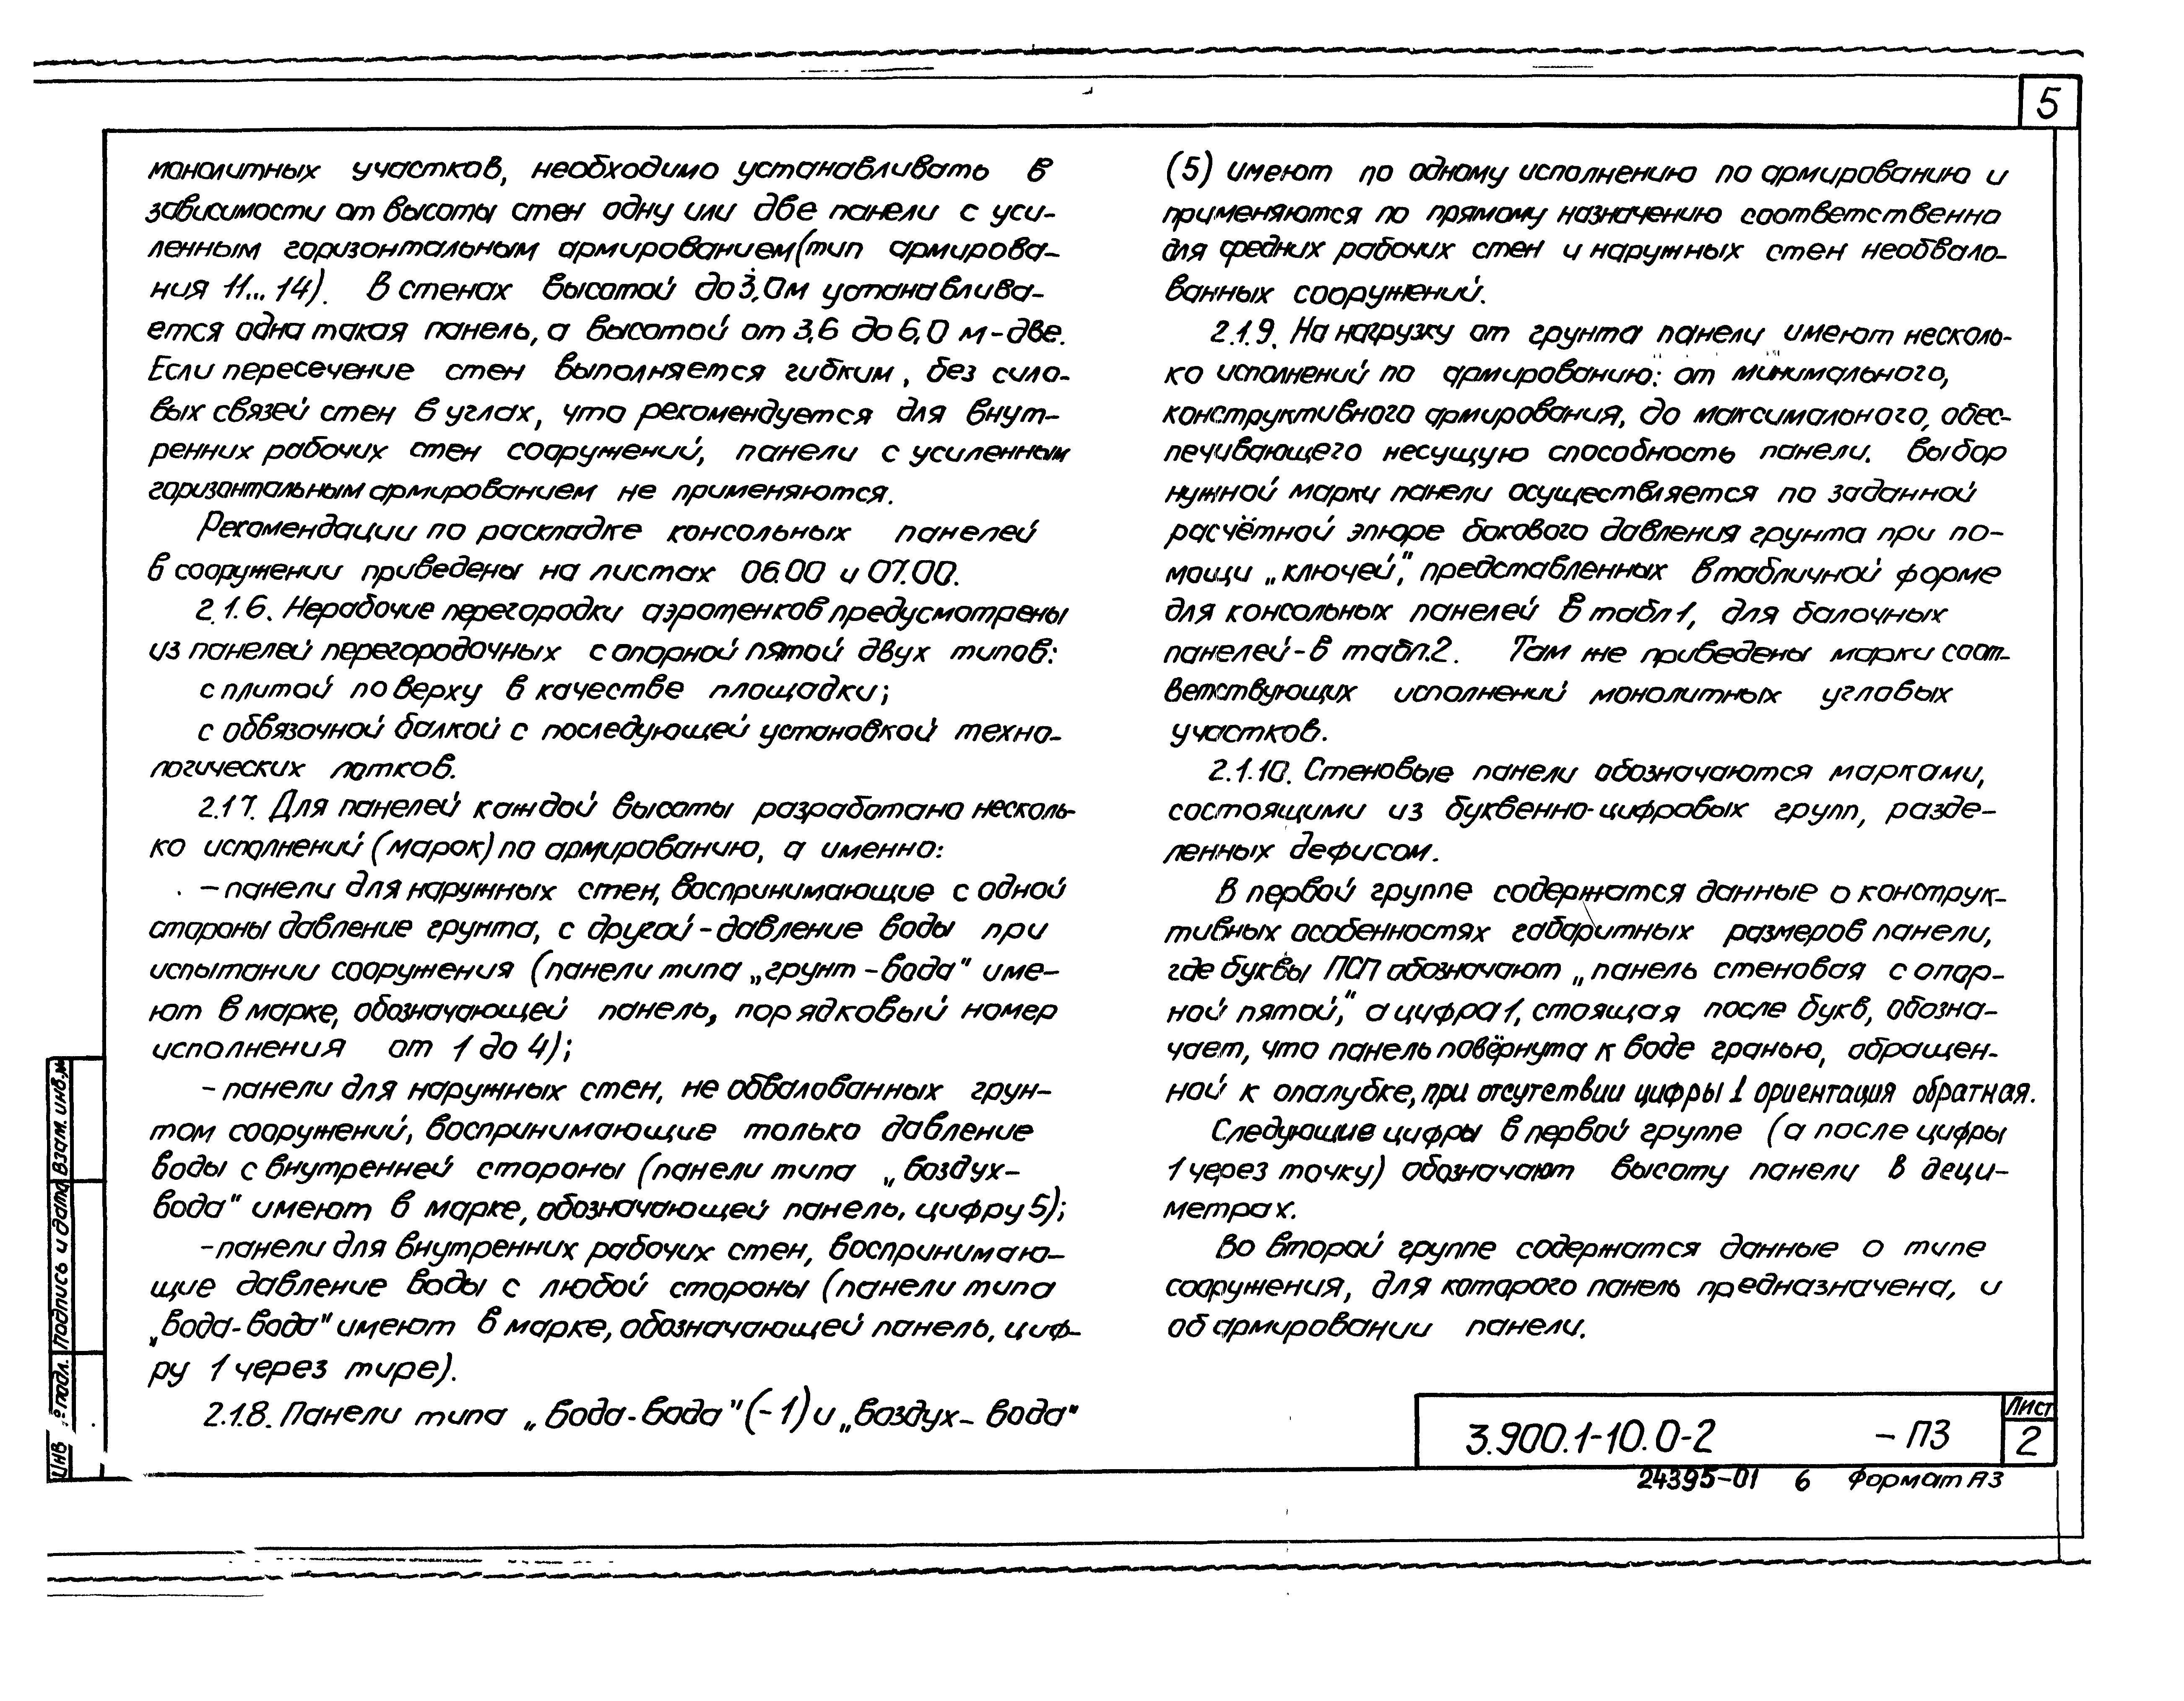 5
монолитных участков, необходимо устанавливать в
зависимости от высоты стен одну или две панели с уси-
ленным горизонтальным армированием (тип армирова-
ния 11... 14). В стенах высотой до 3,0м устанавлива-
ется одна такая панель, а высотой от 3,6 до 6,0 м - две.
Если пересечение стен выполняется гибким, без сило-
вых связей стен в углах, что рекомендуется для внут-
ренних рабочих стен сооружений, панели с усиленным
горизонтальным армированием не применяются.
Рекомендации по раскладке консольных панелей
в сооружении приведены на листах 06.00 и 07.00.
2.1.6. Нерабочие перегородки аэротенков предусмотрены
из панелей перегородочных с опорной пятой двух типов:
с плитой поверху в качестве площадки;
с обвязочной балкой с последующей установкой техно-
логических лотков.
2.1 7. Для панелей каждой высоты разработано несколь-
ко исполнений (марок) по армированию, а именно:
- панели для наружных стен, воспринимающие с одной
стороны давление грунта, с другой - давление воды при
испытании сооружения (панели типа „грунт - вода" име-
ют в марке, обозначающей панель, порядковый номер
исполнения от 1 до 4);
- панели для наружных стен, не обвалованных грун-
том сооружений, воспринимающие только давление
воды с внутренней стороны (панели типа „воздух-
вода" имеют в марке, обозначающей панель, цифру 5);
- панели для внутренних рабочих стен, воспринимаю-
щие давление воды с любой стороны (панели типа
„вода-вода" имеют в марке, обозначающей панель, циф-
ру 1 через тире).
2.1.8. Панели типа „вода-вода" (-1) и „воздух- вода"
(5) имеют по одному исполнению по армированию и
применяются по прямому назначению соответственно
для средних рабочих стен и наружных стен необвало-
ванных сооружений.
2.1.9. На нагрузку от грунта панели имеют несколь-
ко исполнений по армированию: от минимального,
конструктивного армирования, до максимального, обес-
печивающего несущую способность панели. Выбор
нужной марки панели осуществляется по заданной
расчётной эпюре бокового давления грунта при по-
мощи „ключей", представленных в табличной форме
для консольных панелей в табл 1, для балочных
панелей - в табл.2. Там же приведены марки соот-
ветствующих исполнений монолитных угловых
участков.
2.1.10. Стеновые панели обозначаются марками,
состоящими из буквенно-цифровых групп, разде-
ленных дефисом.
В первой группе содержатся данные о конструк-
тивных особенностях габаритных размеров панели,
где буквы ПСП обозначают „панель стеновая с опор-
ной пятой", а цифра 1, стоящая после букв, обозна-
чает, что панель повёрнута к воде гранью, обращен-
ной к опалубке, при отсутствии цифры 1 ориентация обратная.
Следующие цифры в первой группе (а после цифры
1 через точку) обозначают высоту панели в деци-
метрах.
Во второй группе содержатся данные о типе
сооружения, для которого панель предназначена, и
об армировании панели.
Инв № подл. Подпись и дата Взам. инв.№
3.900.1-10.0-2 - ПЗ
Лист
2
24395-01 6 Формат А3